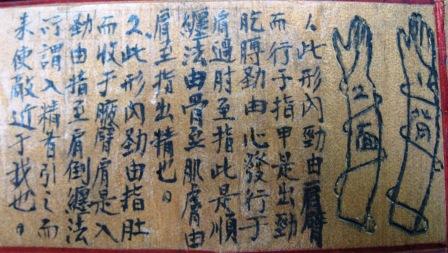 背
面
1.此形内勁由肩臂
而行于指甲是出勁
肐膊勁由心發行于
肩過肘至指此是順
纏法由骨至肌膚由
肩至指出精也。
2.此形内勁由指肚
而收于腋臂肩是入
勁由指至肩倒纏法
所謂入精者引之而
来使敵近于我也。